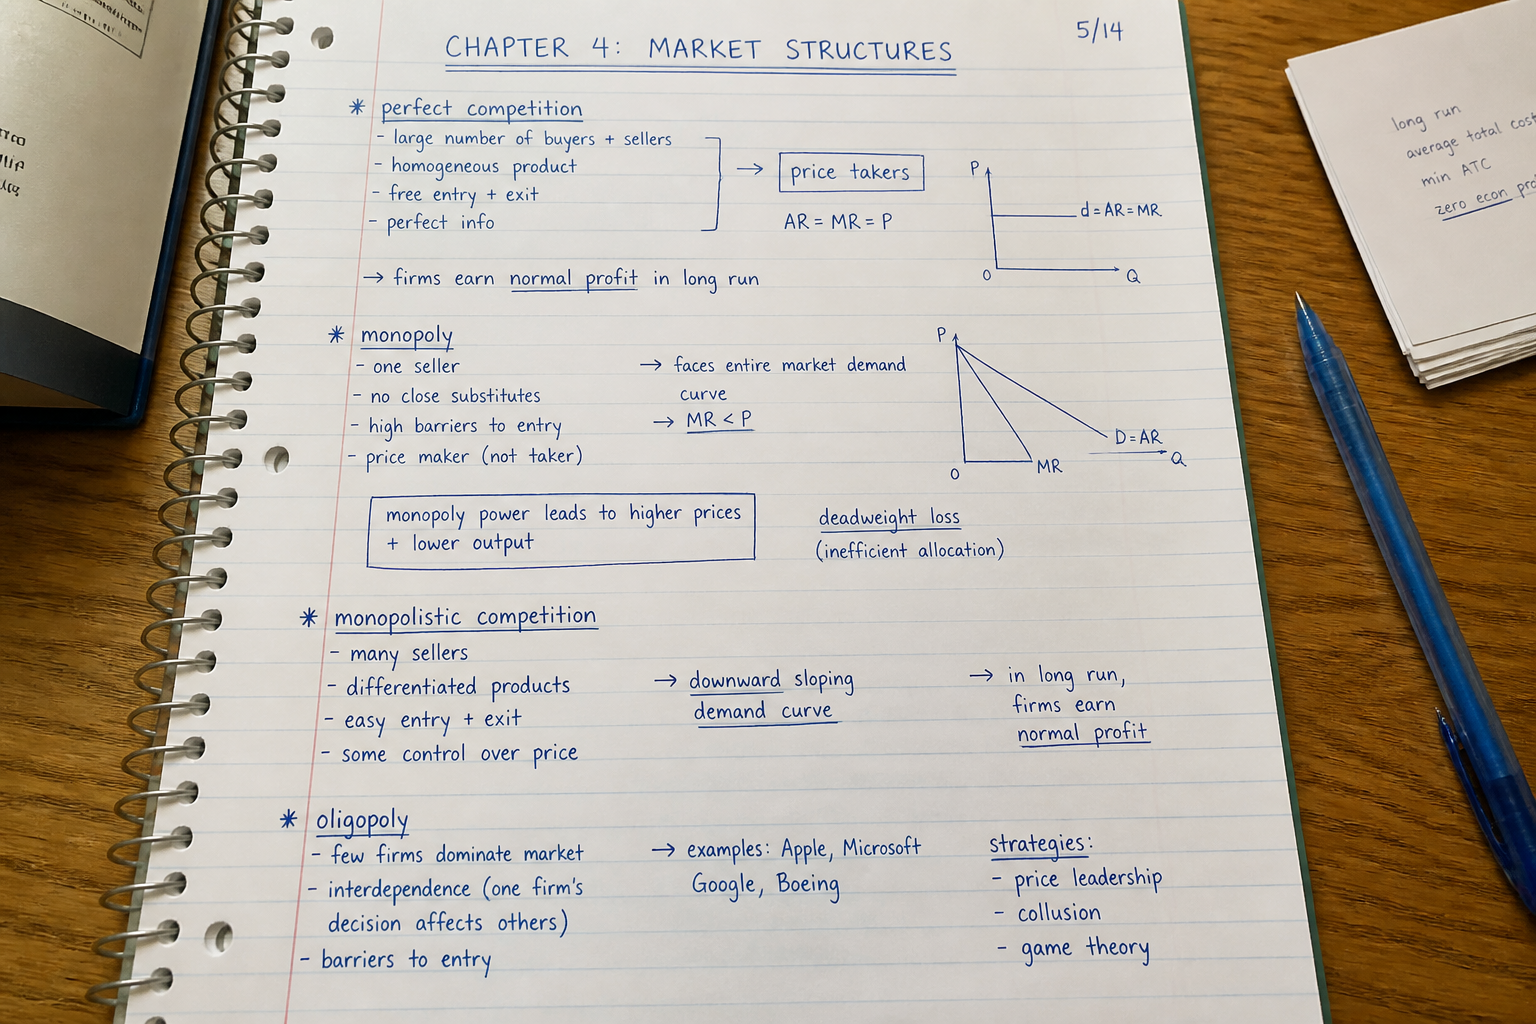 5/14
CHAPTER 4: MARKET STRUCTURES
* perfect competition
- large number of buyers + sellers
- homogeneous product
- free entry + exit
- perfect info
→ price takers
AR = MR = P
P
d = AR = MR
0
Q
→ firms earn normal profit in long run
* monopoly
- one seller
- no close substitutes
- high barriers to entry
- price maker (not taker)
→ faces entire market demand
curve
→ MR < P
P
D = AR
MR
0
Q
monopoly power leads to higher prices
+ lower output
deadweight loss
(inefficient allocation)
* monopolistic competition
- many sellers
- differentiated products
- easy entry + exit
- some control over price
→ downward sloping
demand curve
→ in long run,
firms earn
normal profit
* oligopoly
- few firms dominate market
- interdependence (one firm's
decision affects others)
- barriers to entry
→ examples: Apple, Microsoft
Google, Boeing
strategies:
- price leadership
- collusion
- game theory
long run
average total cost
min ATC
zero econ